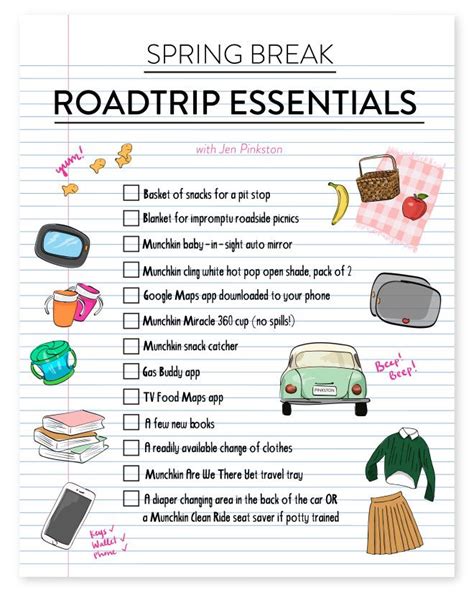 SPRING BREAK
ROADTRIP ESSENTIALS
with Jen Pinkston
yum!
Basket of snacks for a pit stop
Blanket for impromptu roadside picnics
Munchkin baby-in-sight auto mirror
Munchkin cling white hot pop open shade, pack of 2
Google Maps app downloaded to your phone
Munchkin Miracle 360 cup (no spills!)
Munchkin snack catcher
Gas Buddy app
TV Food Maps app
A few new books
A readily available change of clothes
Munchkin Are We There Yet travel tray
A diaper changing area in the back of the car OR
a Munchkin Clean Ride seat saver if potty trained
PINKSTON
Beep!
Beep!
Keys
Wallet
Phone